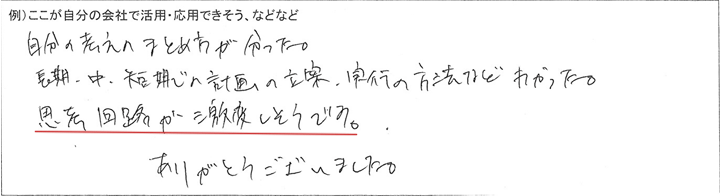 例）ここが自分の会社で活用・応用できそう、などなど
自分の考えのまとめ方が分った。
長期、中、短期での計画の立案、実行の方法などわかった。
思考回路が激変しそうです。
ありがとうございました。